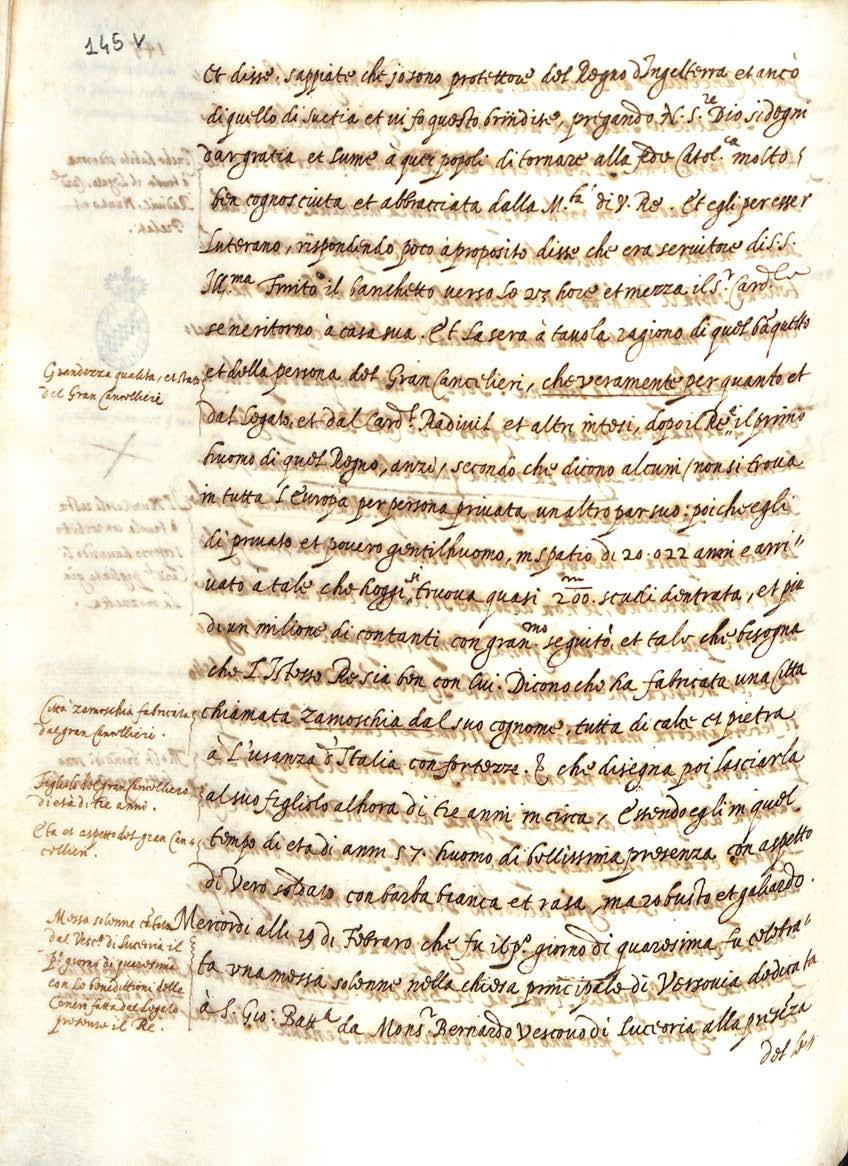 145 v
et disse. sappiate che io sono protettore del Regno d'Ingelterra et anco
di quello di Suetia et vi fo questo brindise, pregando N. S.re Dio si degni
dar gratia et lume à quei popoli di tornare alla fede Catol.ca molto
ben cognosciuta et abbracciata dalla M.tà di V. Re. Et egli per esser
Luterano, rispondendo poco à proposito disse che era servitore di S. S.
Ill.ma Finito il banchetto verso le 23 hore et mezza il S.r Card.le
se ne ritorno à casa sua. Et la sera à tavola ragiono di quel bãquetto
Grandezza qualita, et stato
del Gran Cancellieri
et della persona del Gran Cancelieri, che veramente per quanto et
dal Legato, et dal Card.l Radivil et altri intesi, dopo il Re è il primo
huomo di quel Regno, anzi, secondo che dicono alcuni, non si trova
in tutta l'Europa per persona privata un altro par suo: poiche egli
di privato et povero gentilhuomo, in spatio di 20. o 22 anni è arri"
vato à tale che hoggi si truova quasi 200.m scudi d'entrata, et piu
di un milione di contanti con gran.mo seguito, et tale che bisogna
che l'Istesso Re sia ben con lui. Dicono che ha fabricata una Citta
Città Zamoschia fabricata
dal gran Cancellieri.
chiamata Zamoschia dal suo cognome, tutta di calce et pietra
à l'usanza d'Italia con fortezze. & che disegna poi lasciarla
Figliolo del gran Cancelliero
di età di tre anni.
al suo figliolo alhora di tre anni in circa, Essendo egli in quel
Eta et aspetto del gran Can
cellieri.
tempo di eta di anni 57. huomo di bellissima presenza con aspetto
di vero soldato con barba bianca et rasa, ma robusto et galiardo.
Messa solenne cãtata
dal Vesc.o di Luceria il
p.o giorno di quaresima
con le benedittioni delle
Ceneri fatta dal Legato
presente il Re.
Mercordi alli 19 di Febraro che fu il p.o giorno di quaresima, fu celebra"
ta una messa solenne nella chiesa principale di Versovia dedicata
à S. Gio: Batt.a da Mons.r Bernardo Vescovo di Luceoria alla presẽza
del